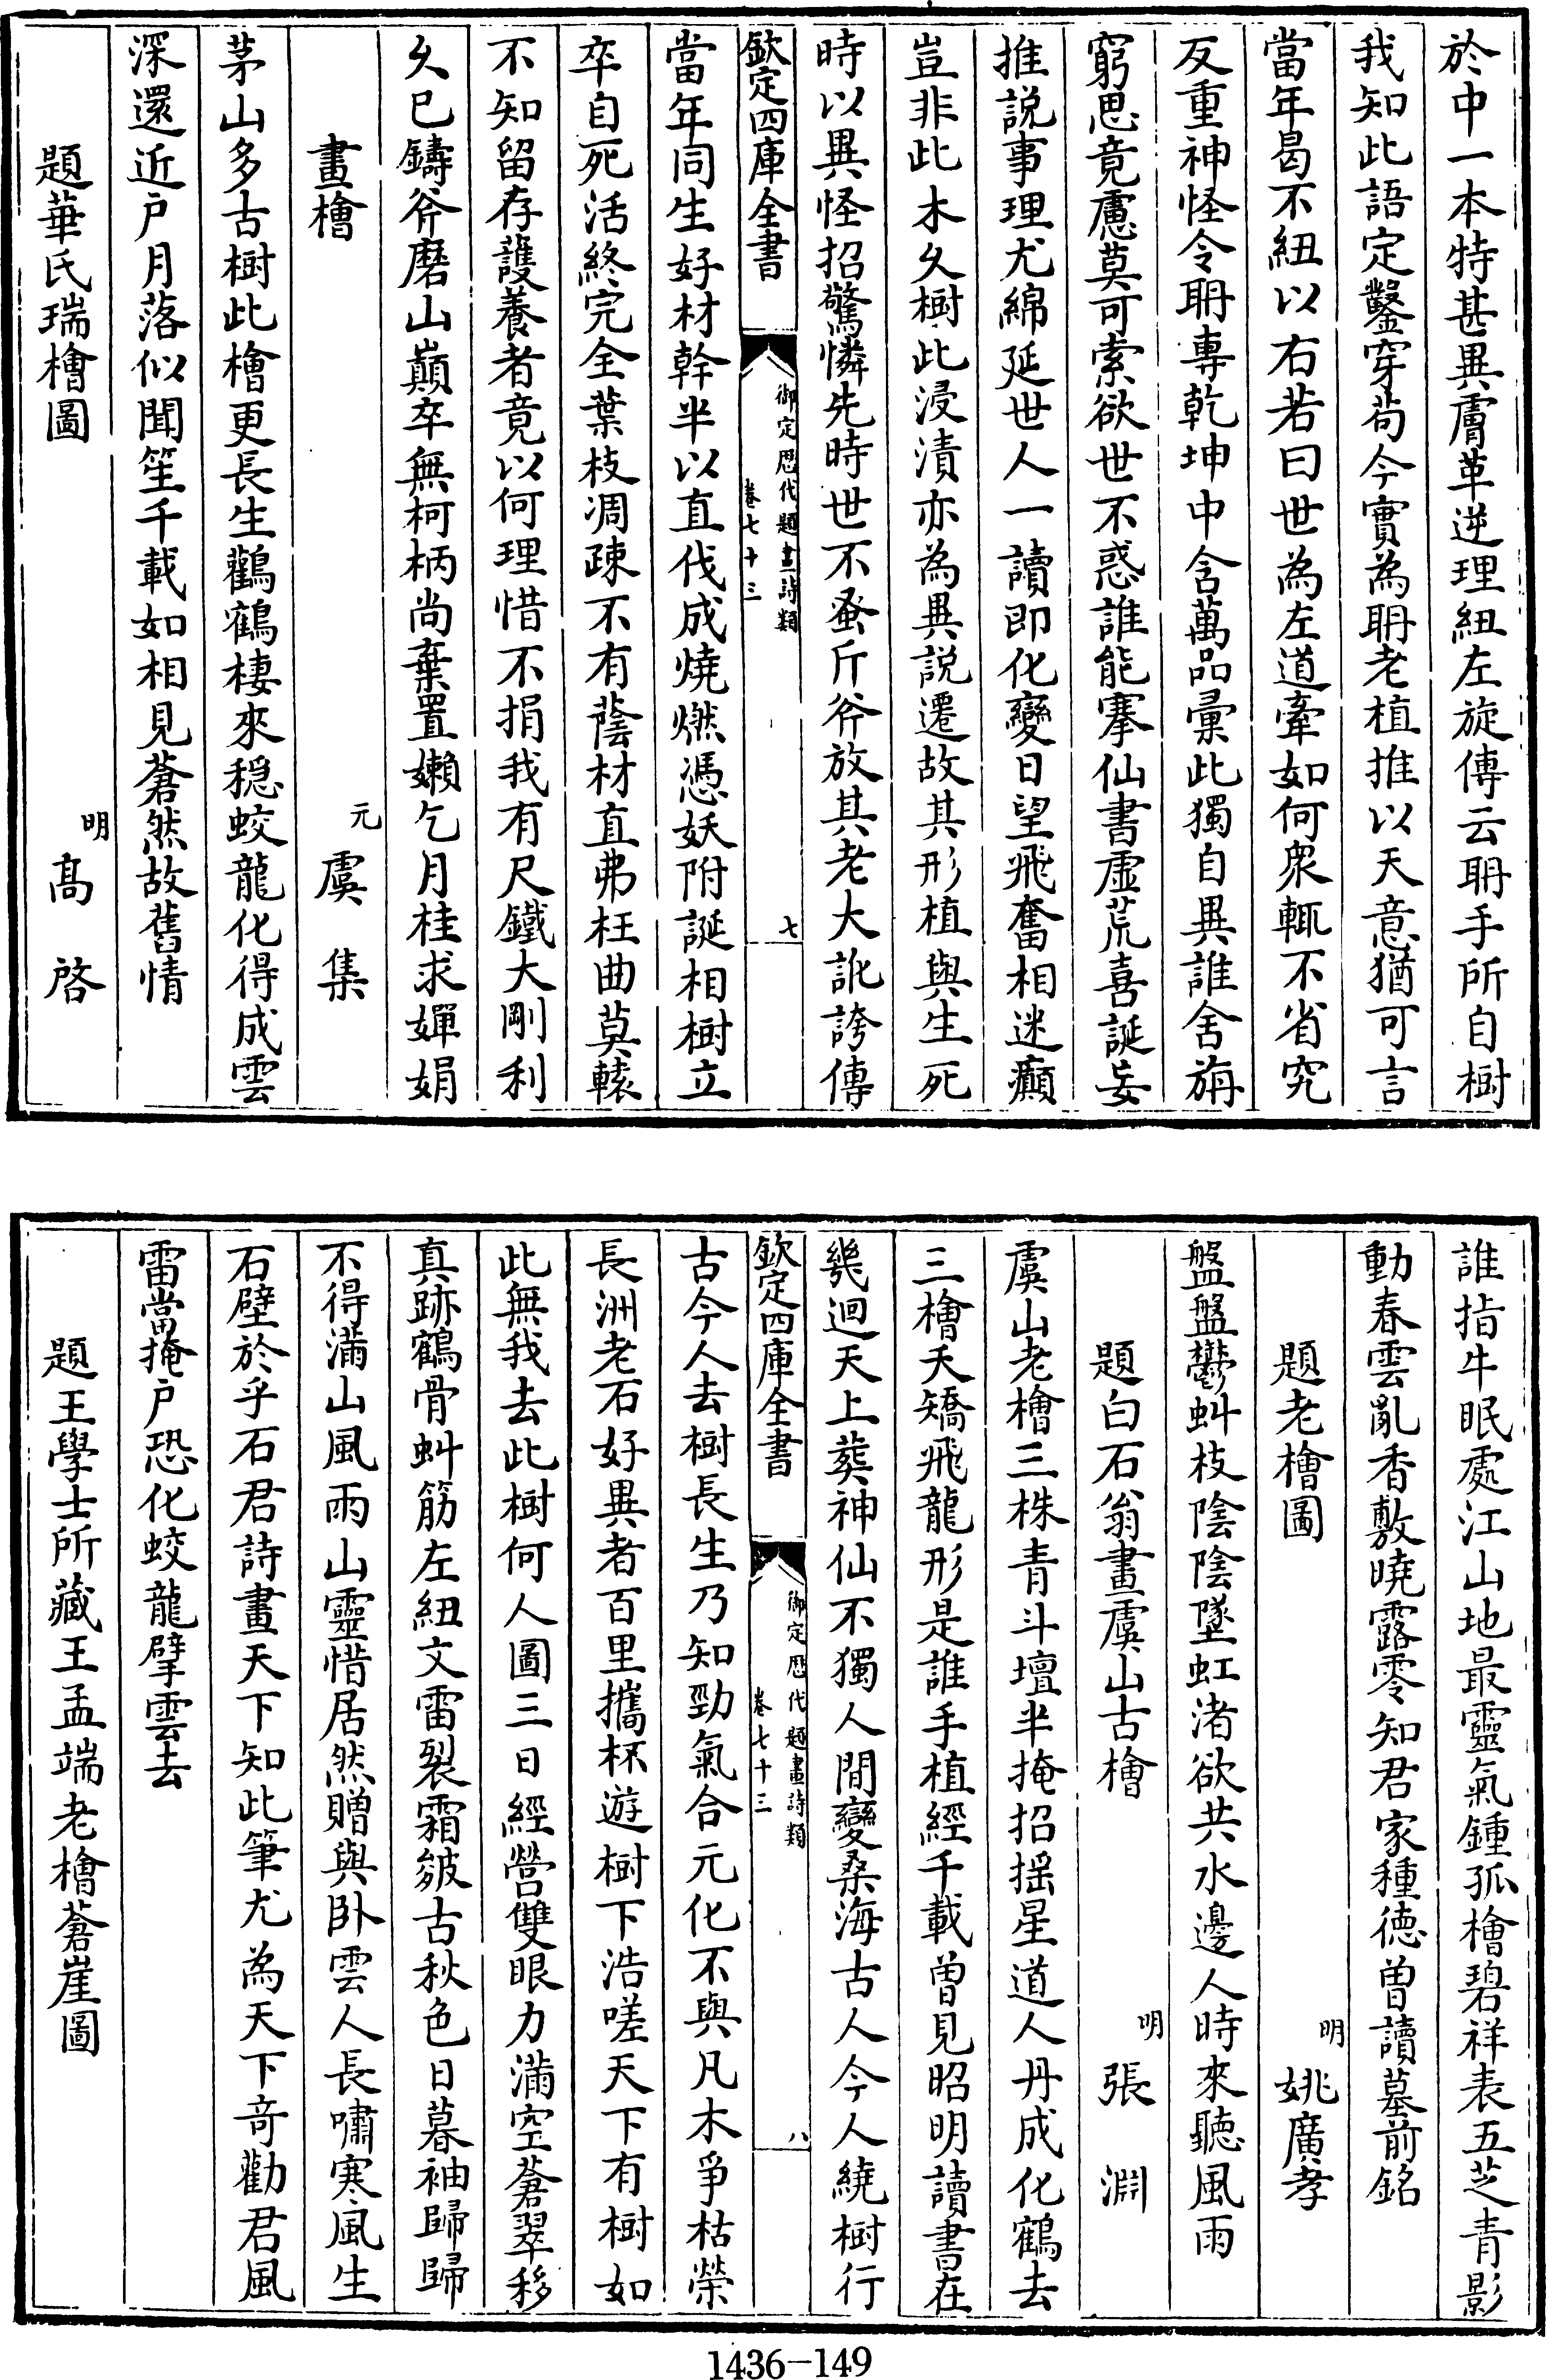 於中一本特甚異膚革逆理紐左旋傳云耼手所自樹
我知此語定鑿穿茍今實為耼老植推以天意猶可言
當年曷不紐以右若曰世為左道牽如何衆輒不省究
反重神怪令耼專乾坤中含萬品彚此獨自異誰舍旃
窮思竟慮莫可索欲世不惑誰能搴仙書虛荒喜誕妄
推説事理尤綿延世人一讀即化變日望飛奮相迷癲
豈非此木乆樹此浸漬亦為異説遷故其形植與生死
時以異怪招驚憐先時世不蚤斤斧放其老大訛誇傳
欽定四庫全書
御定歴代題畫詩類
卷七十三
七
當年同生好材幹半以直伐成燒燃憑妖附誕相樹立
卒自死活終完全葉枝凋疎不有蔭材直弗枉曲莫轅
不知留存護養者竟以何理惜不捐我有尺鐵大剛利
乆已鑄斧磨山巔卒無柯柄尚棄置嬾乞月桂求嬋娟
畫檜
元
虞集
茅山多古樹此檜更長生鸛鶴棲來穏蛟龍化得成雲
深還近户月落似聞笙千載如相見蒼然故舊情
題華氏瑞檜圖
明
髙啓
誰指牛眠處江山地最靈氣鍾孤檜碧祥表五芝青影
動春雲亂香敷曉露零知君家種徳曽讀墓前銘
題老檜圖
明
姚廣孝
盤盤鬱虯枝陰陰墜虹渚欲共水邊人時來聽風雨
題白石翁畫虞山古檜
明
張淵
虞山老檜三株青斗壇半掩招揺星道人丹成化鶴去
三檜夭矯飛龍形是誰手植經千載曽見昭明讀書在
幾迴天上葬神仙不獨人間變桑海古人今人繞樹行
欽定四庫全書
御定歴代題畫詩類
卷七十三
八
古今人去樹長生乃知勁氣合元化不與凡木爭枯榮
長洲老石好異者百里攜杯遊樹下浩嗟天下有樹如
此無我去此樹何人圖三日經營雙眼力滿空蒼翠移
真跡鶴骨虯筋左紐文雷裂霜皴古秋色日暮袖歸歸
不得滿山風雨山靈惜居然贈與卧雲人長嘯寒風生
石壁於乎石君詩畫天下知此筆尤為天下竒勸君風
雷當掩户恐化蛟龍擘雲去
題王學士所藏王孟端老檜蒼崖圖
1436-149